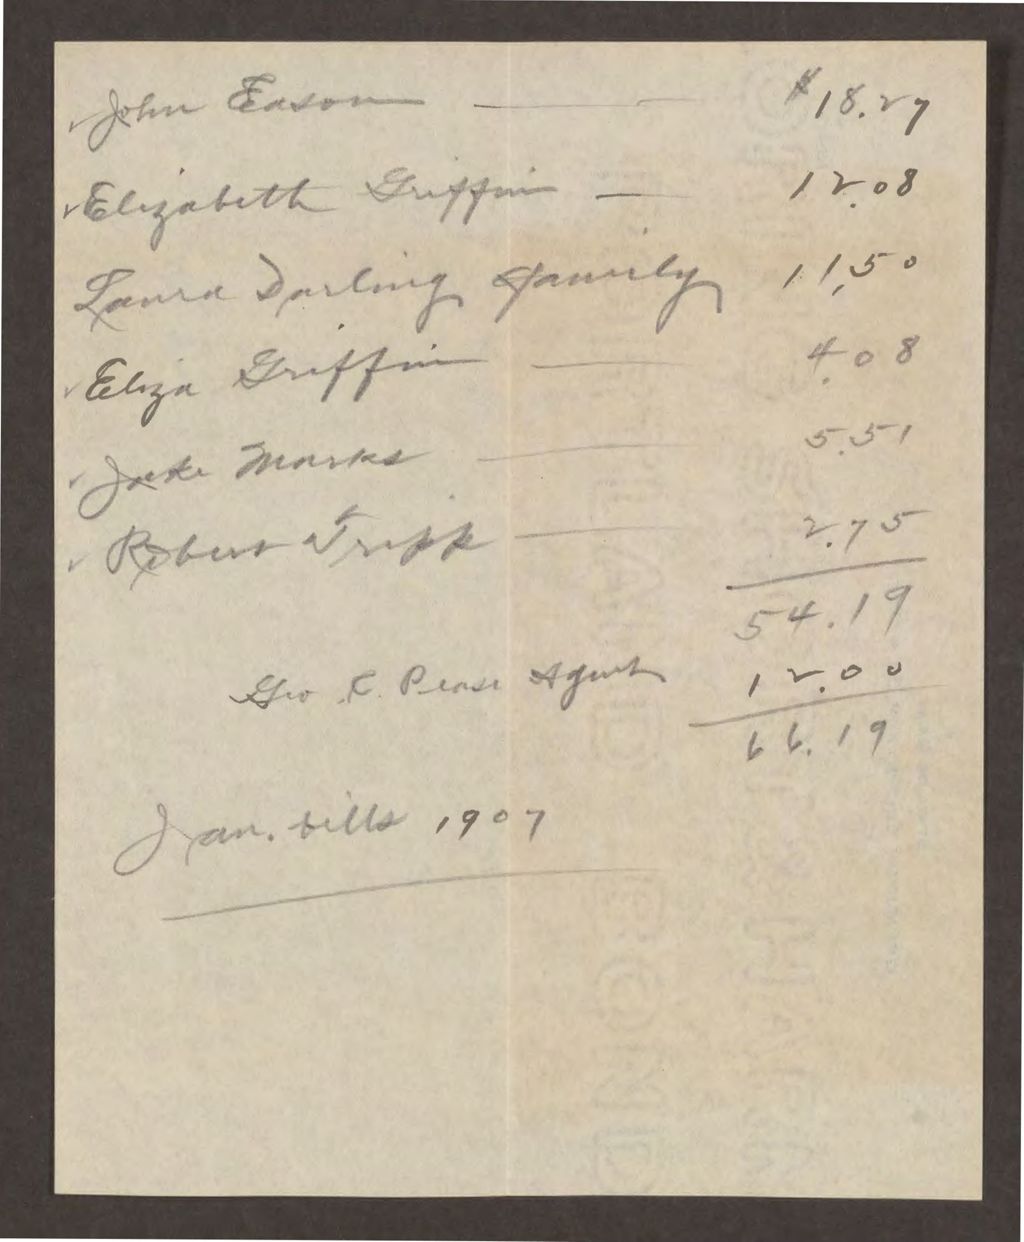 ✓ John Eason — $18.27
✓ Elizabeth Griffin — 12.08
Laura Darling family 11.50
✓ Eliza Griffin — 4.08
✓ Jake Marks — 5.51
✓ Robert Tripp — 2.75
54.19
Geo. E. Pease Agent 12.00
66.19
Jan. bills 1907